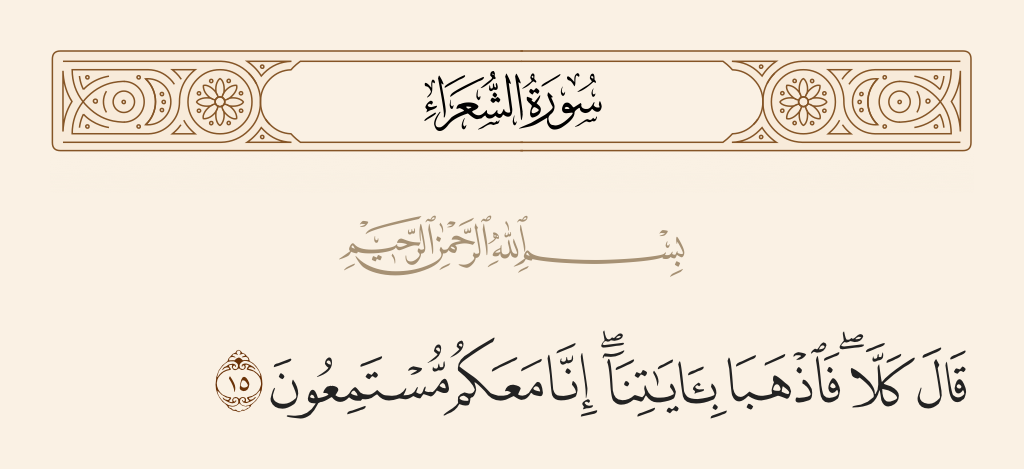 سُورَةُ الشُّعَرَاءِ
بِسْمِ ٱللَّهِ ٱلرَّحْمَٰنِ ٱلرَّحِيمِ
قَالَ كَلَّا ۖ فَٱذْهَبَا بِـَٔايَـٰتِنَآ ۖ إِنَّا مَعَكُم مُّسْتَمِعُونَ ١٥